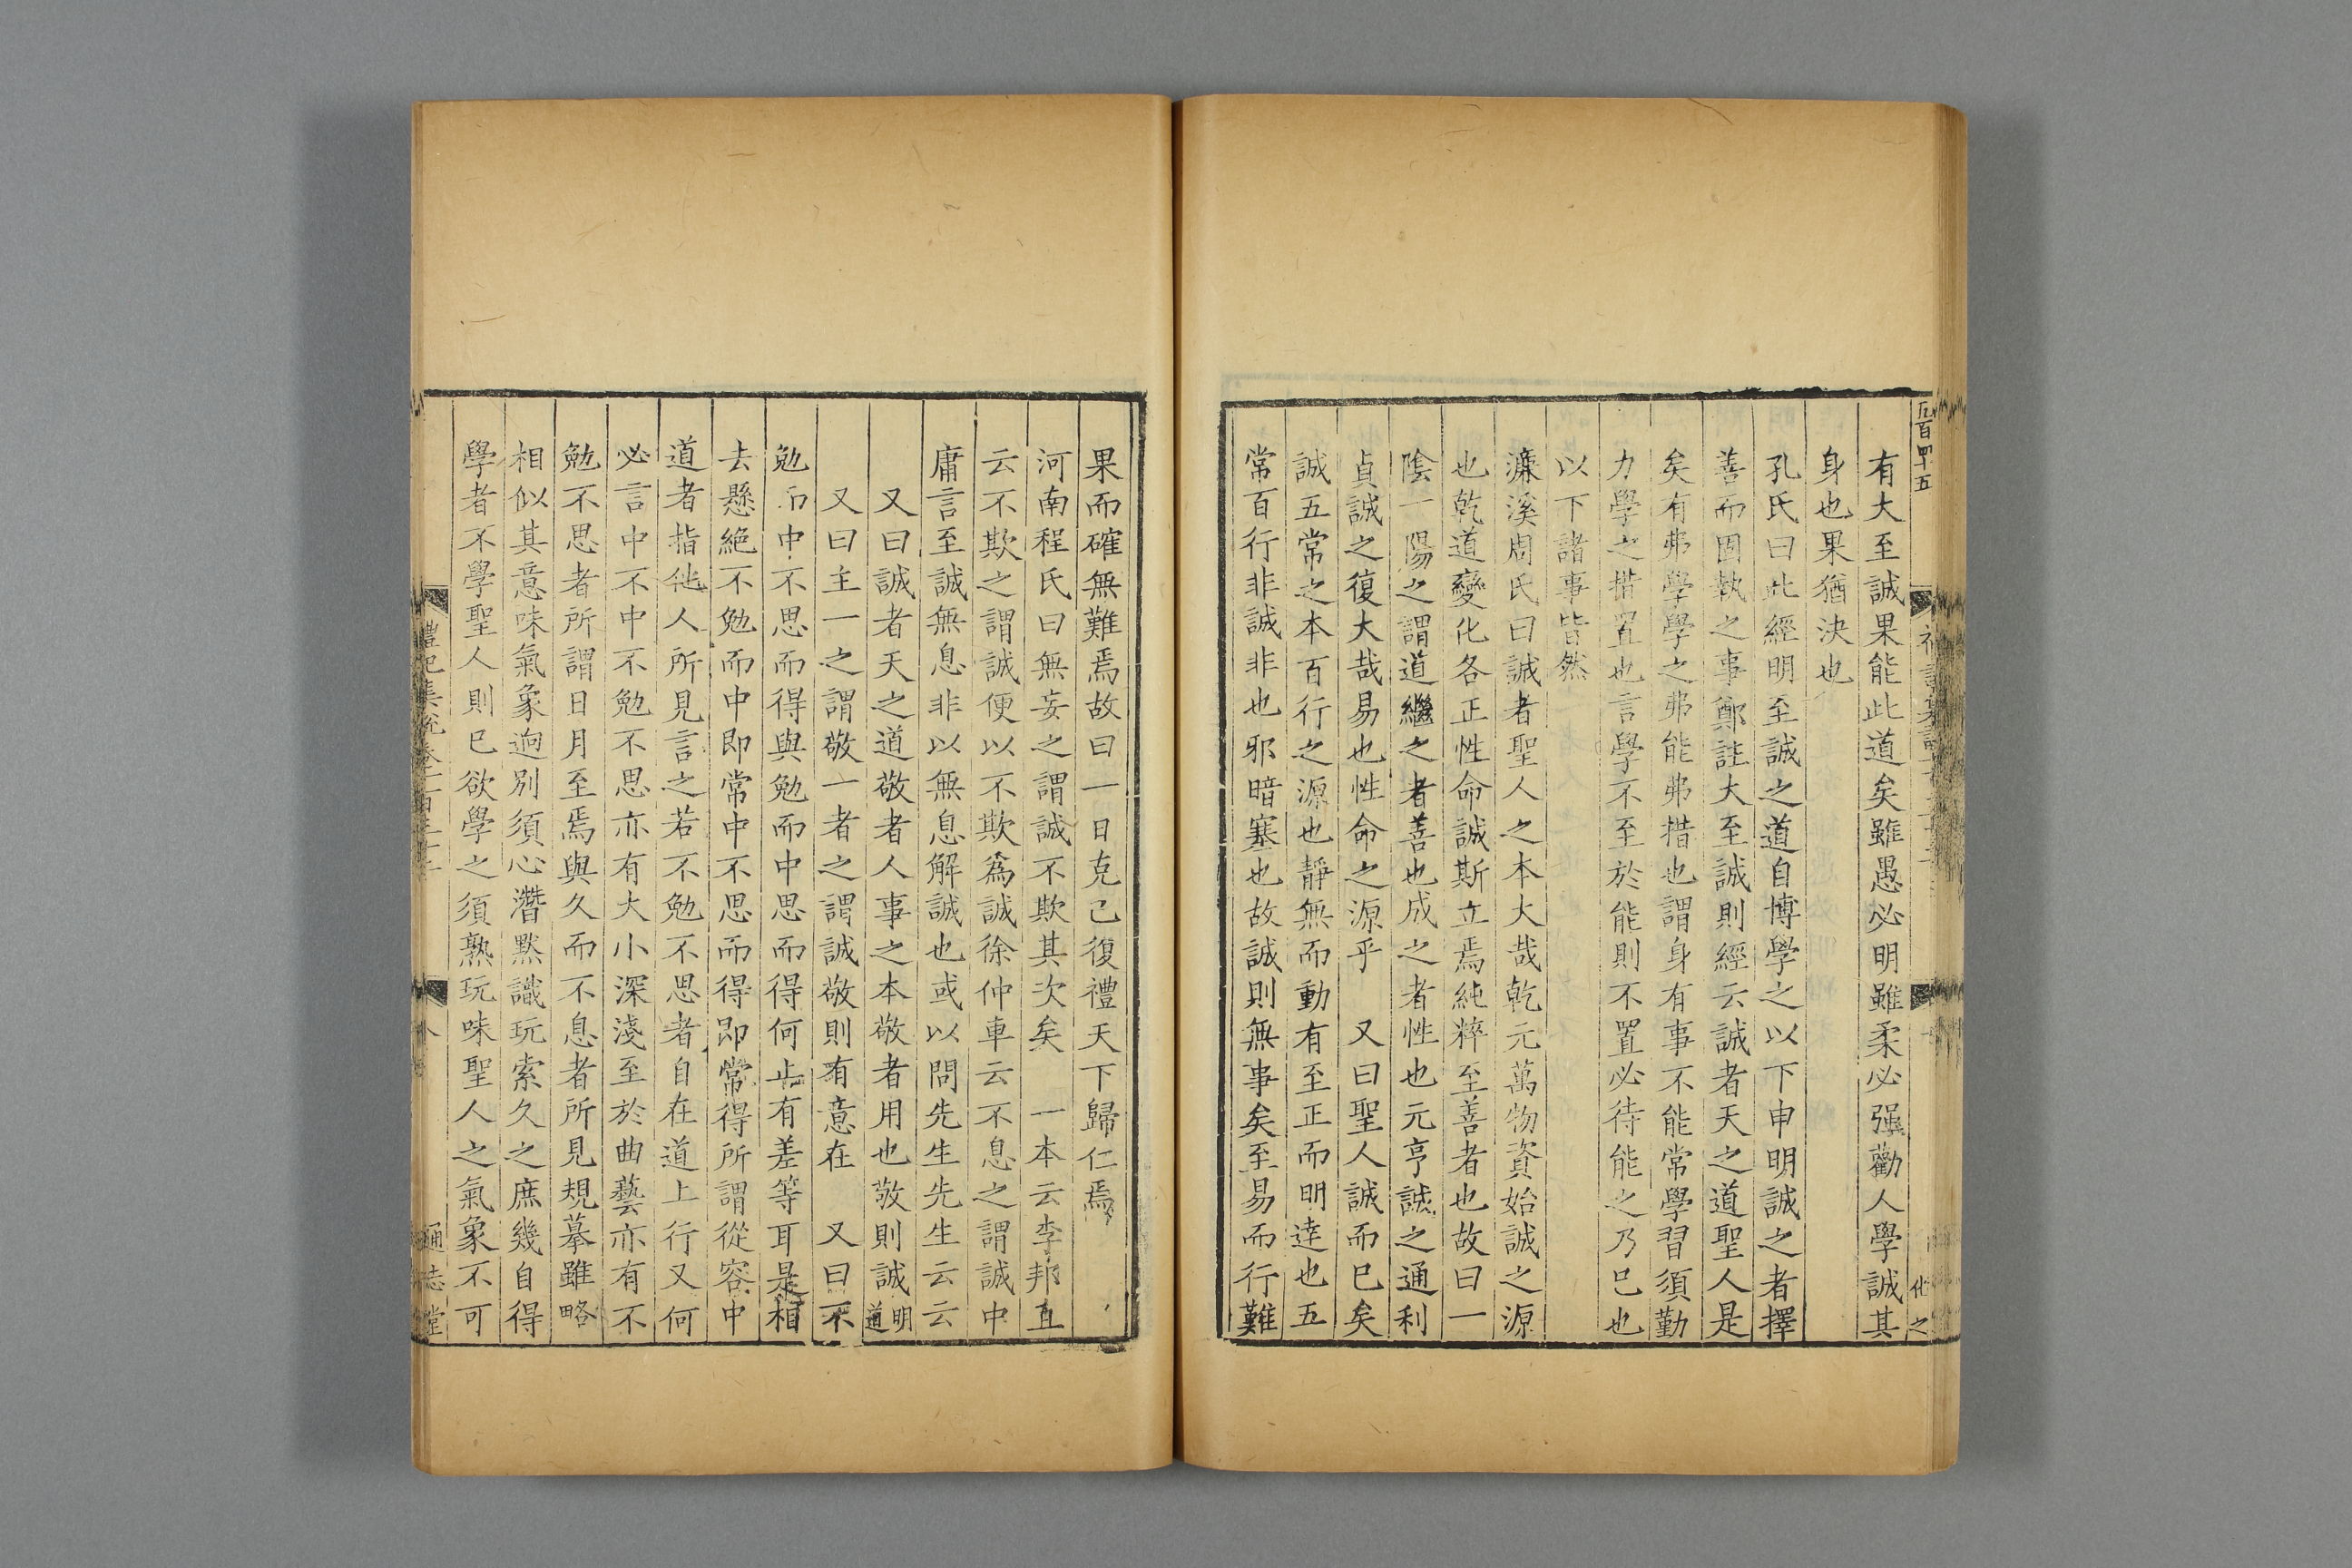 有大至誠果能此道矣雖愚必明雖柔必强勸人學誠其
身也果猶決也
孔氏曰此經明至誠之道自博學之以下申明誠之者擇
善而固執之事鄭註大至誠則經云誠者天之道聖人是
矣有弗學學之弗能弗措也謂身有事不能常學習須勤
力學之措置也言學不至於能則不置必待能之乃已也
以下諸事皆然
濂溪周氏曰誠者聖人之本大哉乾元萬物資始誠之源
也乾道變化各正性命誠斯立焉純粹至善者也故曰一
陰一陽之謂道繼之者善也成之者性也元亨誠之通利
貞誠之復大哉易也性命之源乎 又曰聖人誠而已矣
誠五常之本百行之源也靜無而動有至正而明達也五
常百行非誠非也邪暗塞也故誠則無事矣至易而行難
果而確無難焉故曰一日克己復禮天下歸仁焉
河南程氏曰無妄之謂誠不欺其次矣 一本云李邦直
云不欺之謂誠便以不欺爲誠徐仲車云不息之謂誠中
庸言至誠無息非以無息解誠也或以問先生先生云云
又曰誠者天之道敬者人事之本敬者用也敬則誠明道
又曰主一之謂敬一者之謂誠敬則有意在 又曰不
勉而中不思而得與勉而中思而得何止有差等耳是相
去懸絕不勉而中即常中不思而得即常得所謂從容中
道者指他人所見言之若不勉不思者自在道上行又何
必言中不中不勉不思亦有大小深淺至於曲藝亦有不
勉不思者所謂日月至焉與久而不息者所見規摹雖略
相似其意味氣象迥別須心潛默識玩索久之庶幾自得
學者不學聖人則已欲學之須熟玩味聖人之氣象不可
禮記集說卷一百三十三
八
通志堂